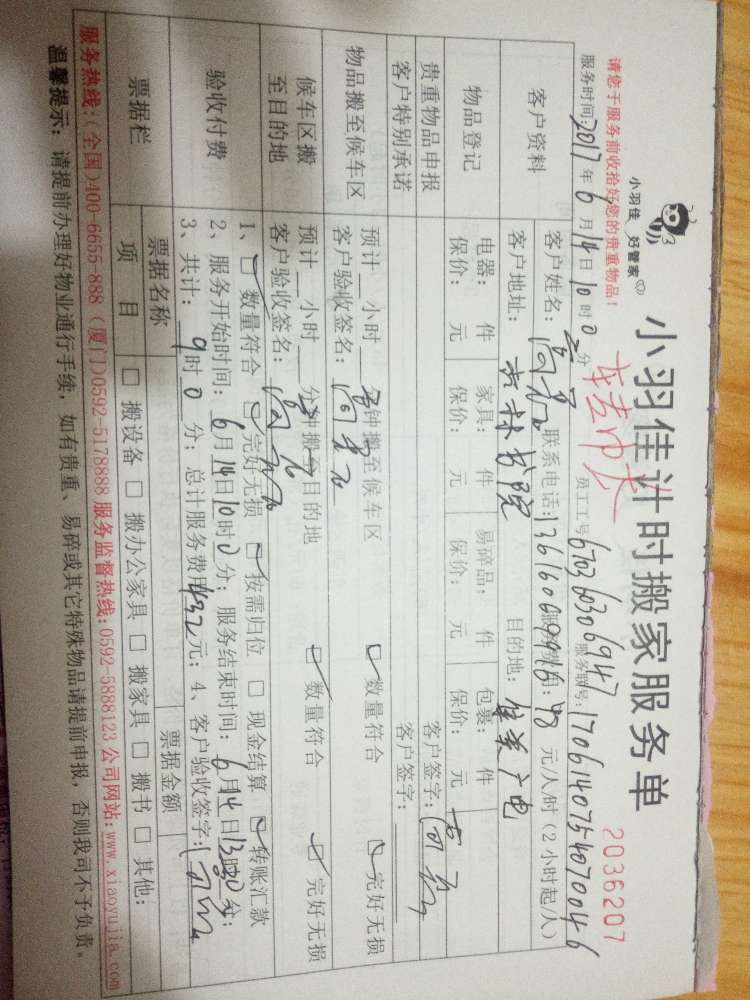 小羽佳计时搬家服务单
2036207
小羽佳 好管家
请您于服务前收拾好您的贵重物品!
服务时间:2017年6月14日10时0分 员工工号:67036030 6947 服务单号:1706140754070046
客户资料
客户姓名: 联系电话:13616069996 服务费用:48元/人/时(2小时起/人)
客户地址: 书院 目的地: 广电
物品登记
电器: 件 家具: 件 易碎品: 件 包裹: 件
保价: 元 保价: 元 保价: 元 保价: 元
贵重物品申报 客户签字:
客户特别承诺 客户签字:
物品搬至候车区
预计 小时 分钟搬至候车区 数量符合 完好无损
客户验收签名:
候车区搬至目的地
预计 小时 分钟搬至目的地 数量符合 完好无损
客户验收签名:
验收付费
1、 数量符合 完好无损 按需归位 现金结算 转账汇款
2、服务开始时间:6月14日10时0分;服务结束时间:6月14日13时0分;
3、共计:9时0分;总计服务费用432元;4、客户验收签字:
票据栏
票据名称 票据金额
项目 搬设备 搬办公家具 搬家具 搬书 其他:
服务热线:(全国)400-6655-888 (厦门)0592-5178888 服务监督热线:0592-5888123 公司网站:www.xiaoyujia.com
温馨提示:请提前办理好物业通行手续,如有贵重、易碎或其它特殊物品请提前申报,否则我司不予负责。